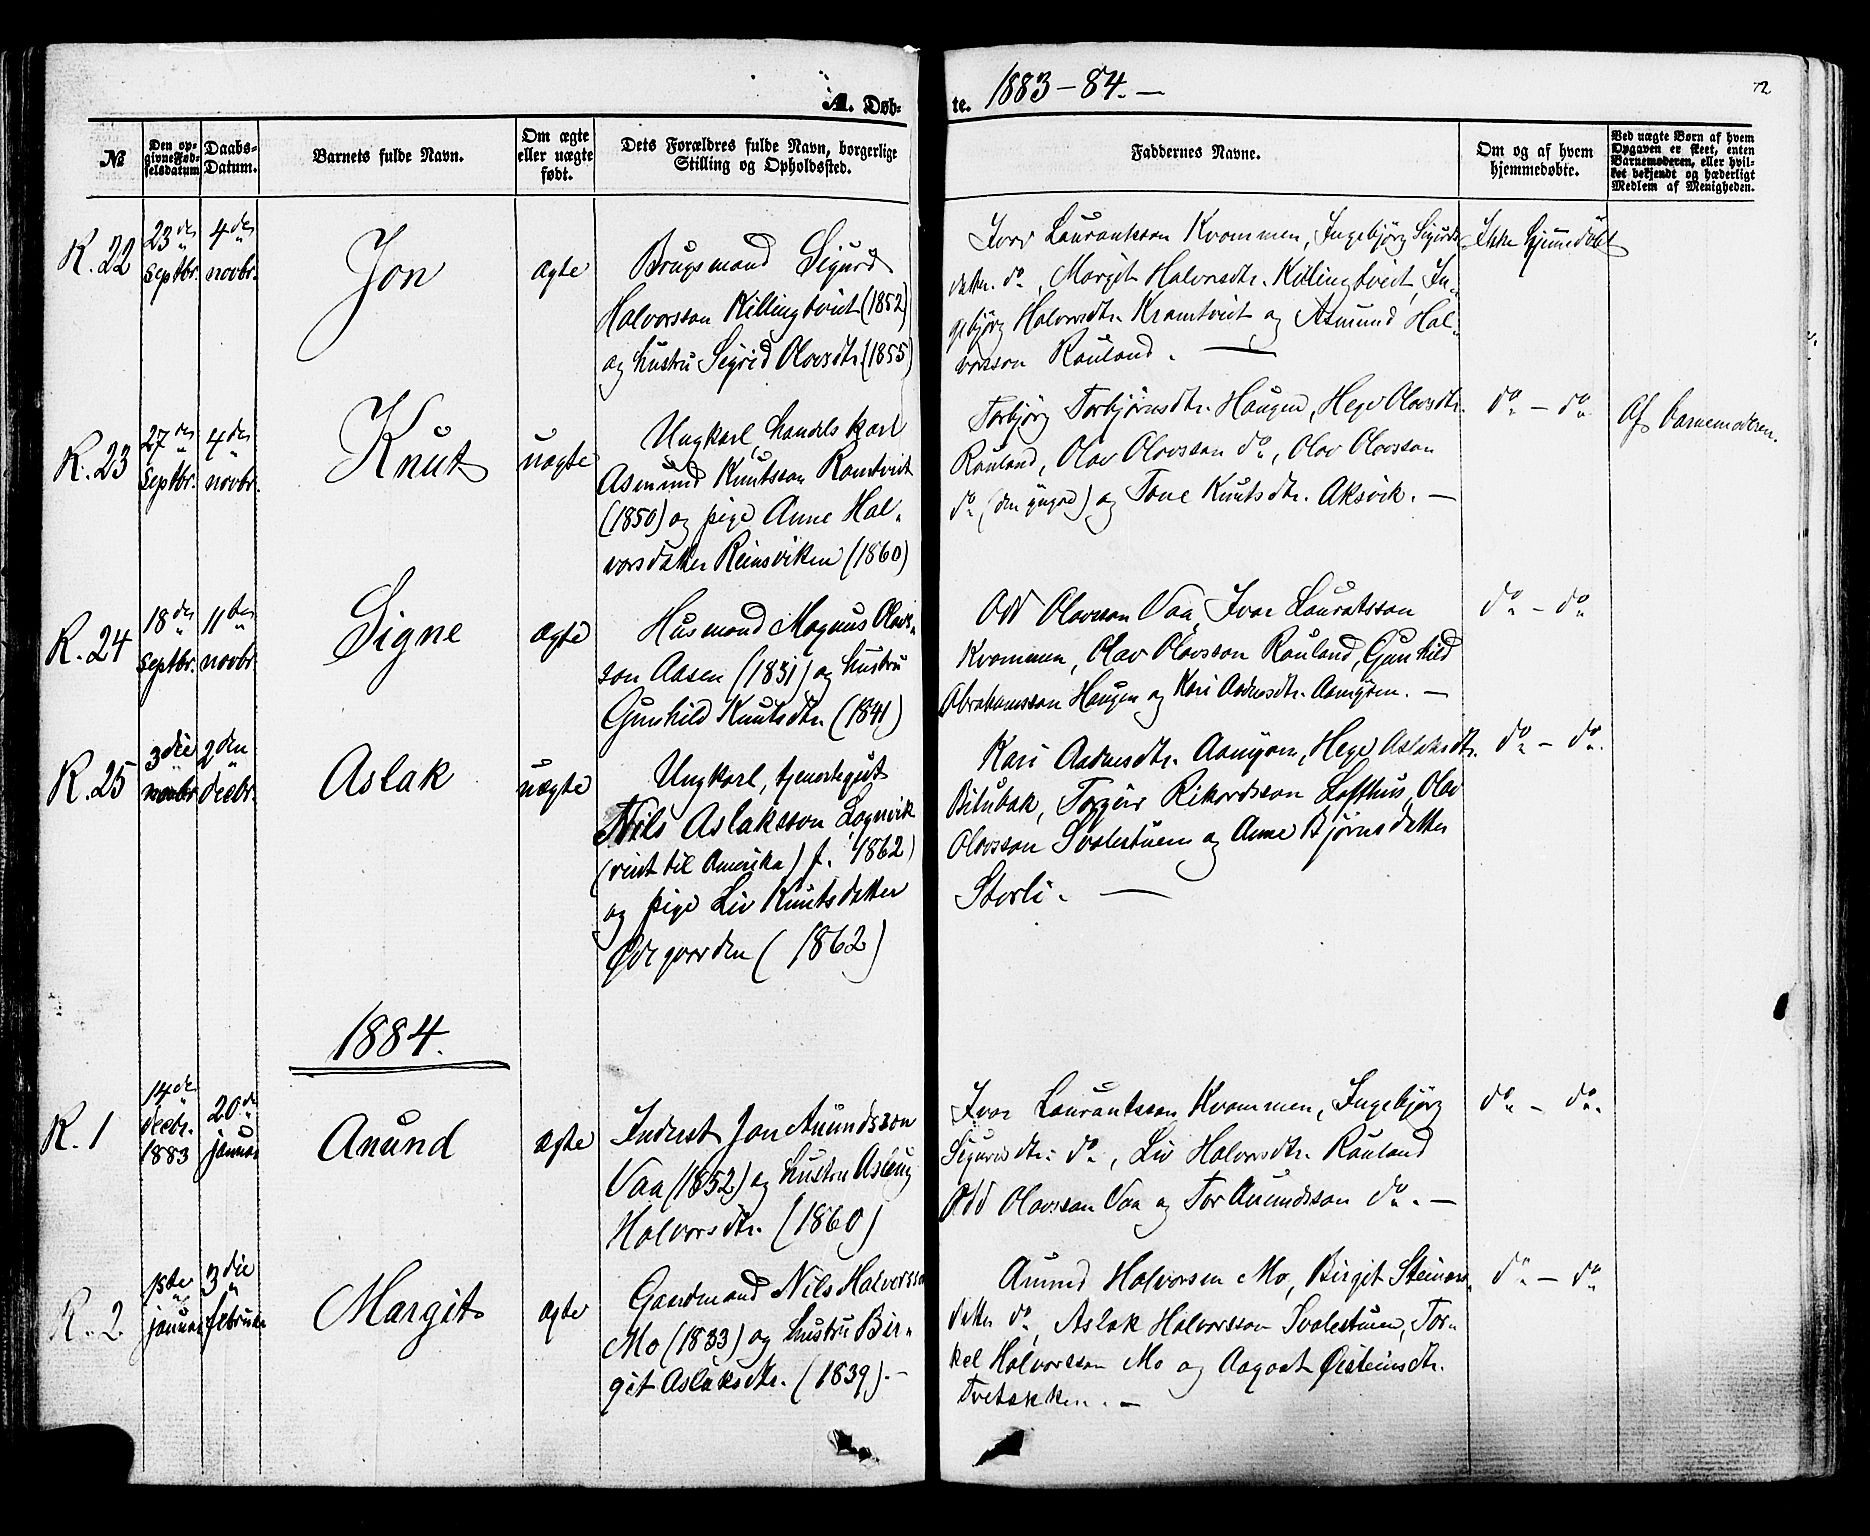 A. Døb- te. 1883-84.-
72
№
Den op-
givne Fød-
selsdatum
Daabs-
Datum.
Barnets fulde Navn.
Om ægte
eller uægte
født.
Dets Forældres fulde Navn, borgerlige
Stilling og Opholdssted.
Faddernes Navne.
Om og af hvem
hjemmedøbte.
Ved uægte Børn af hvem
Opgaven er skeet, enten
Barnemoderen, eller hvil-
ket bekjendt og hæderligt
Medlem af Menigheden.
R. 22
23de
septbr.
4de
novbr.
Jon
ægte
Brugsmand Sigurd
Halvorsson Killingtveit (1852)
og hustru Sigrid Olavsdtr. (1855)
Ivar Laurantsson Kvammen, Ingebjörg Sigurds-
datter do, Margit Halvorsdtr. Killingtveit, In-
gebjörg Halvorsdtr. Kramtveit og Asmund Hal-
vorsson Rauland. —
Ikke hjemmedøbt
R. 23
27de
septbr.
4de
novbr.
Knut
uægte
Ungkarl, handelskarl
Asmund Knutsson Ramtveit
(1850) og pige Anne Hal-
vorsdatter Reinsviken (1860)
Torbjörg Torbjörnsdtr. Haugen, Hege Olavsdtr.
Rauland, Olav Olavsson do, Olav Olavsson
do (den yngre) og Tone Knutsdtr. Aksvik. —
do - do
Af barnemoderen.
R. 24
18de
septbr.
11te
novbr.
Signe
ægte
Husmand Magnus Olavs-
son Aasen (1831) og hustru
Gunhild Knutsdtr. (1841)
Odd Olavsson Vaa, Ivar Laurantsson
Kvammen, Olav Olavsson Rauland, Gunhild
Abrahamsson Haugen og Kari Aadnesdtr. Aamyren. —
do - do
R. 25
3die
novbr.
2den
decbr.
Aslak
uægte
Ungkarl, tjenestegut
Nils Aslaksson Lognvik
(reist til Amerika) f. 1862)
og pige Liv Knutsdatter
Ødegaarden (1862)
Kari Aadnesdtr. Aamyren, Hege Aslaksdtr.
Bitubak, Torgeir Rikardsson Lofthus, Olav
Olavsson Svalestuen og Anne Bjørnsdatter
Storli. —
do - do.
1884.
R. 1
14de
decbr.
1883
20de
januar
Anund
ægte
Inderst Jon Anundsson
Vaa (1852) og hustru Aslaug
Halvorsdtr. (1860)
Ivar Laurantsson Kvammen, Ingebjörg
Sigurdsdtr. do, Liv Halvorsdtr. Rauland
Odd Olavsson Vaa og Tor Anundsson do. —
do - do.
R. 2
1ste
januar
3die
februar
Margit
ægte
Gaardmand Nils Halvorsson
Mo (1833) og hustru Bir-
git Aslaksdtr. (1839).-
Anund Halvorsen Mo, Birgit Steinars-
datter do, Aslak Halvorsson Svalestuen, Tor-
kel Halvorsson Mo og Aagaat Øisteinsdtr.
Tvetakken. —
do - do